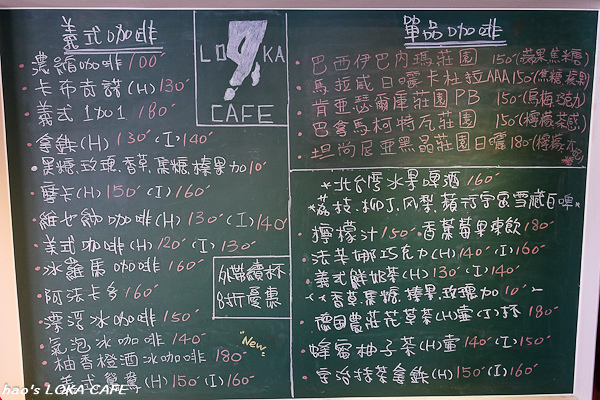 義式咖啡
濃縮咖啡 100
卡布奇諾(H) 130
義式 1to1 180
拿鐵(H) 130 (I) 140
黑糖.玫瑰.香草.焦糖.榛果加10
摩卡(H) 150 (I) 160
維也納咖啡(H) 130 (I) 140
美式咖啡(H) 120 (I) 130
冰羅馬咖啡 160
阿法卡多 160
漂浮冰咖啡 150
氣泡冰咖啡 140
柚香橙酒冰咖啡 180
New
義式鴛鴦(H) 150 (I) 160
LOKA
CAFE
外帶續杯
8折優惠
單品咖啡
巴西伊巴內瑪莊園 150 (蘋果焦糖)
馬拉威日曬卡杜拉AAA 150 (焦糖.蘋果)
肯亞瑟爾庫莊園 PB 150 (烏梅.巧克力)
巴拿馬柯特瓦莊園 150 (檸檬茶感)
坦尚尼亞黑晶莊園日曬 180
*北台灣水果啤酒 160
荔枝.柳丁.鳳梨.蘋
檸檬汁 150 香蕉莓果凍飲 180
法芙娜巧克力(H) 140 (I) 160
義式鮮奶茶(H) 130 (I) 140
香草.焦糖.榛果.玫瑰加 10
德國農莊花草茶(H)壺(I)杯 180
蜂蜜柚子茶(H)壺 140 (I) 150
宇治抹茶拿鐵(H) 150 (I) 160
hao's LOKA CAFE